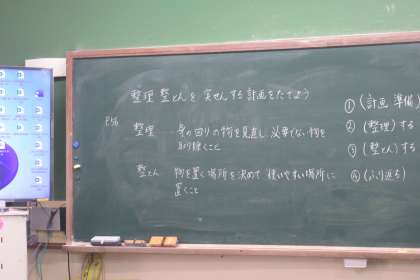 整理 整とんを 実せんする 計画をたてよう
P56
整理 … 身の回りの物を見直し、必要でない物を
取り除くこと
整とん 物を置く場所を決めて 使いやすい場所に
置くこと
① (計画 準備)
② (整理) する
③ (整とん) する
④ (ふり返る)